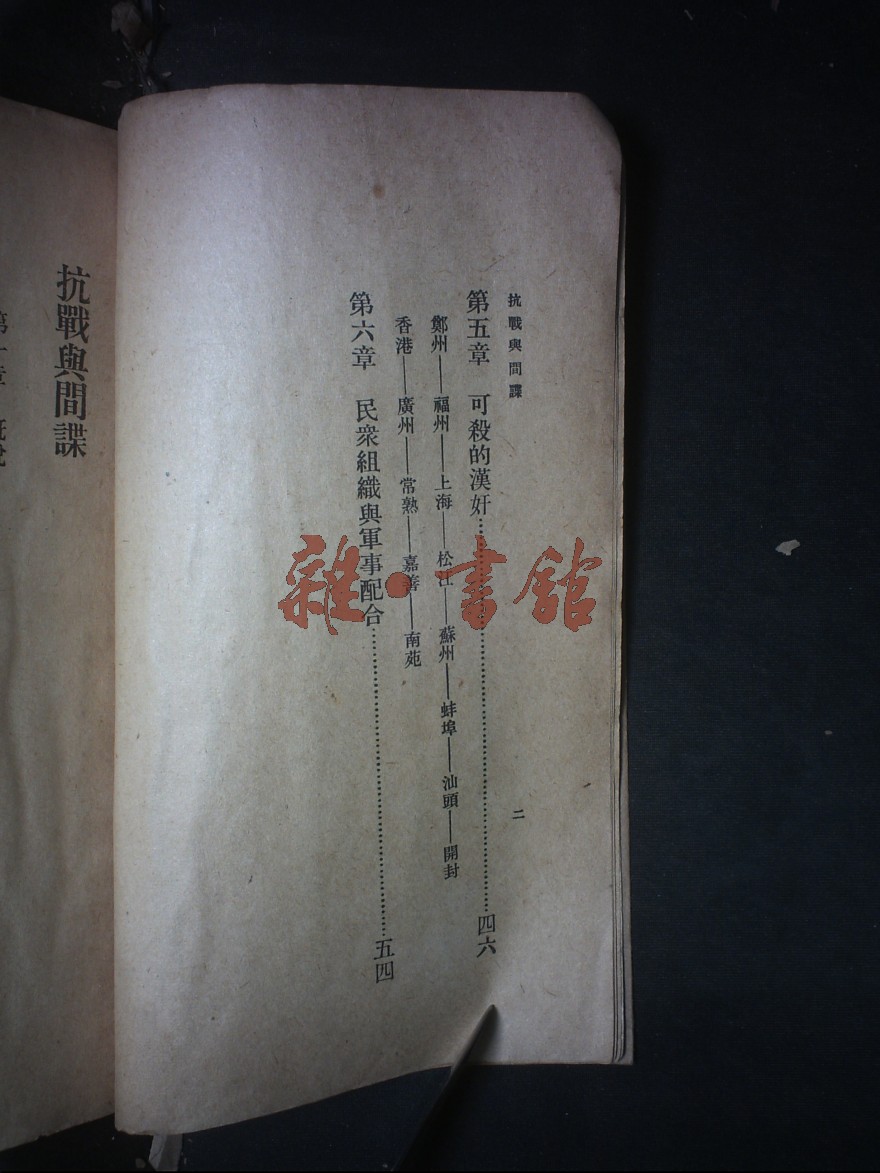 抗戰與間諜
二
第五章 可殺的漢奸……………………四六
鄭州——福州——上海——松江——蘇州——蚌埠——汕頭——開封
香港——廣州——常熟——嘉善——南苑
第六章 民衆組織與軍事配合……………………五四
雜·書館
抗戰與間諜
第一章 概說